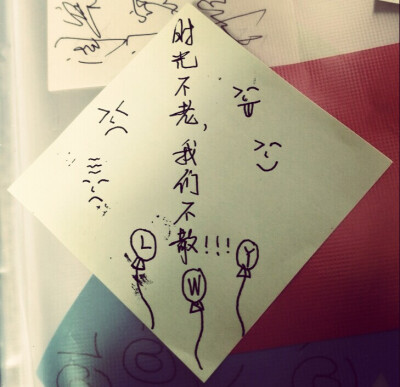 时光不老，我们不散!!!
L
W
Y